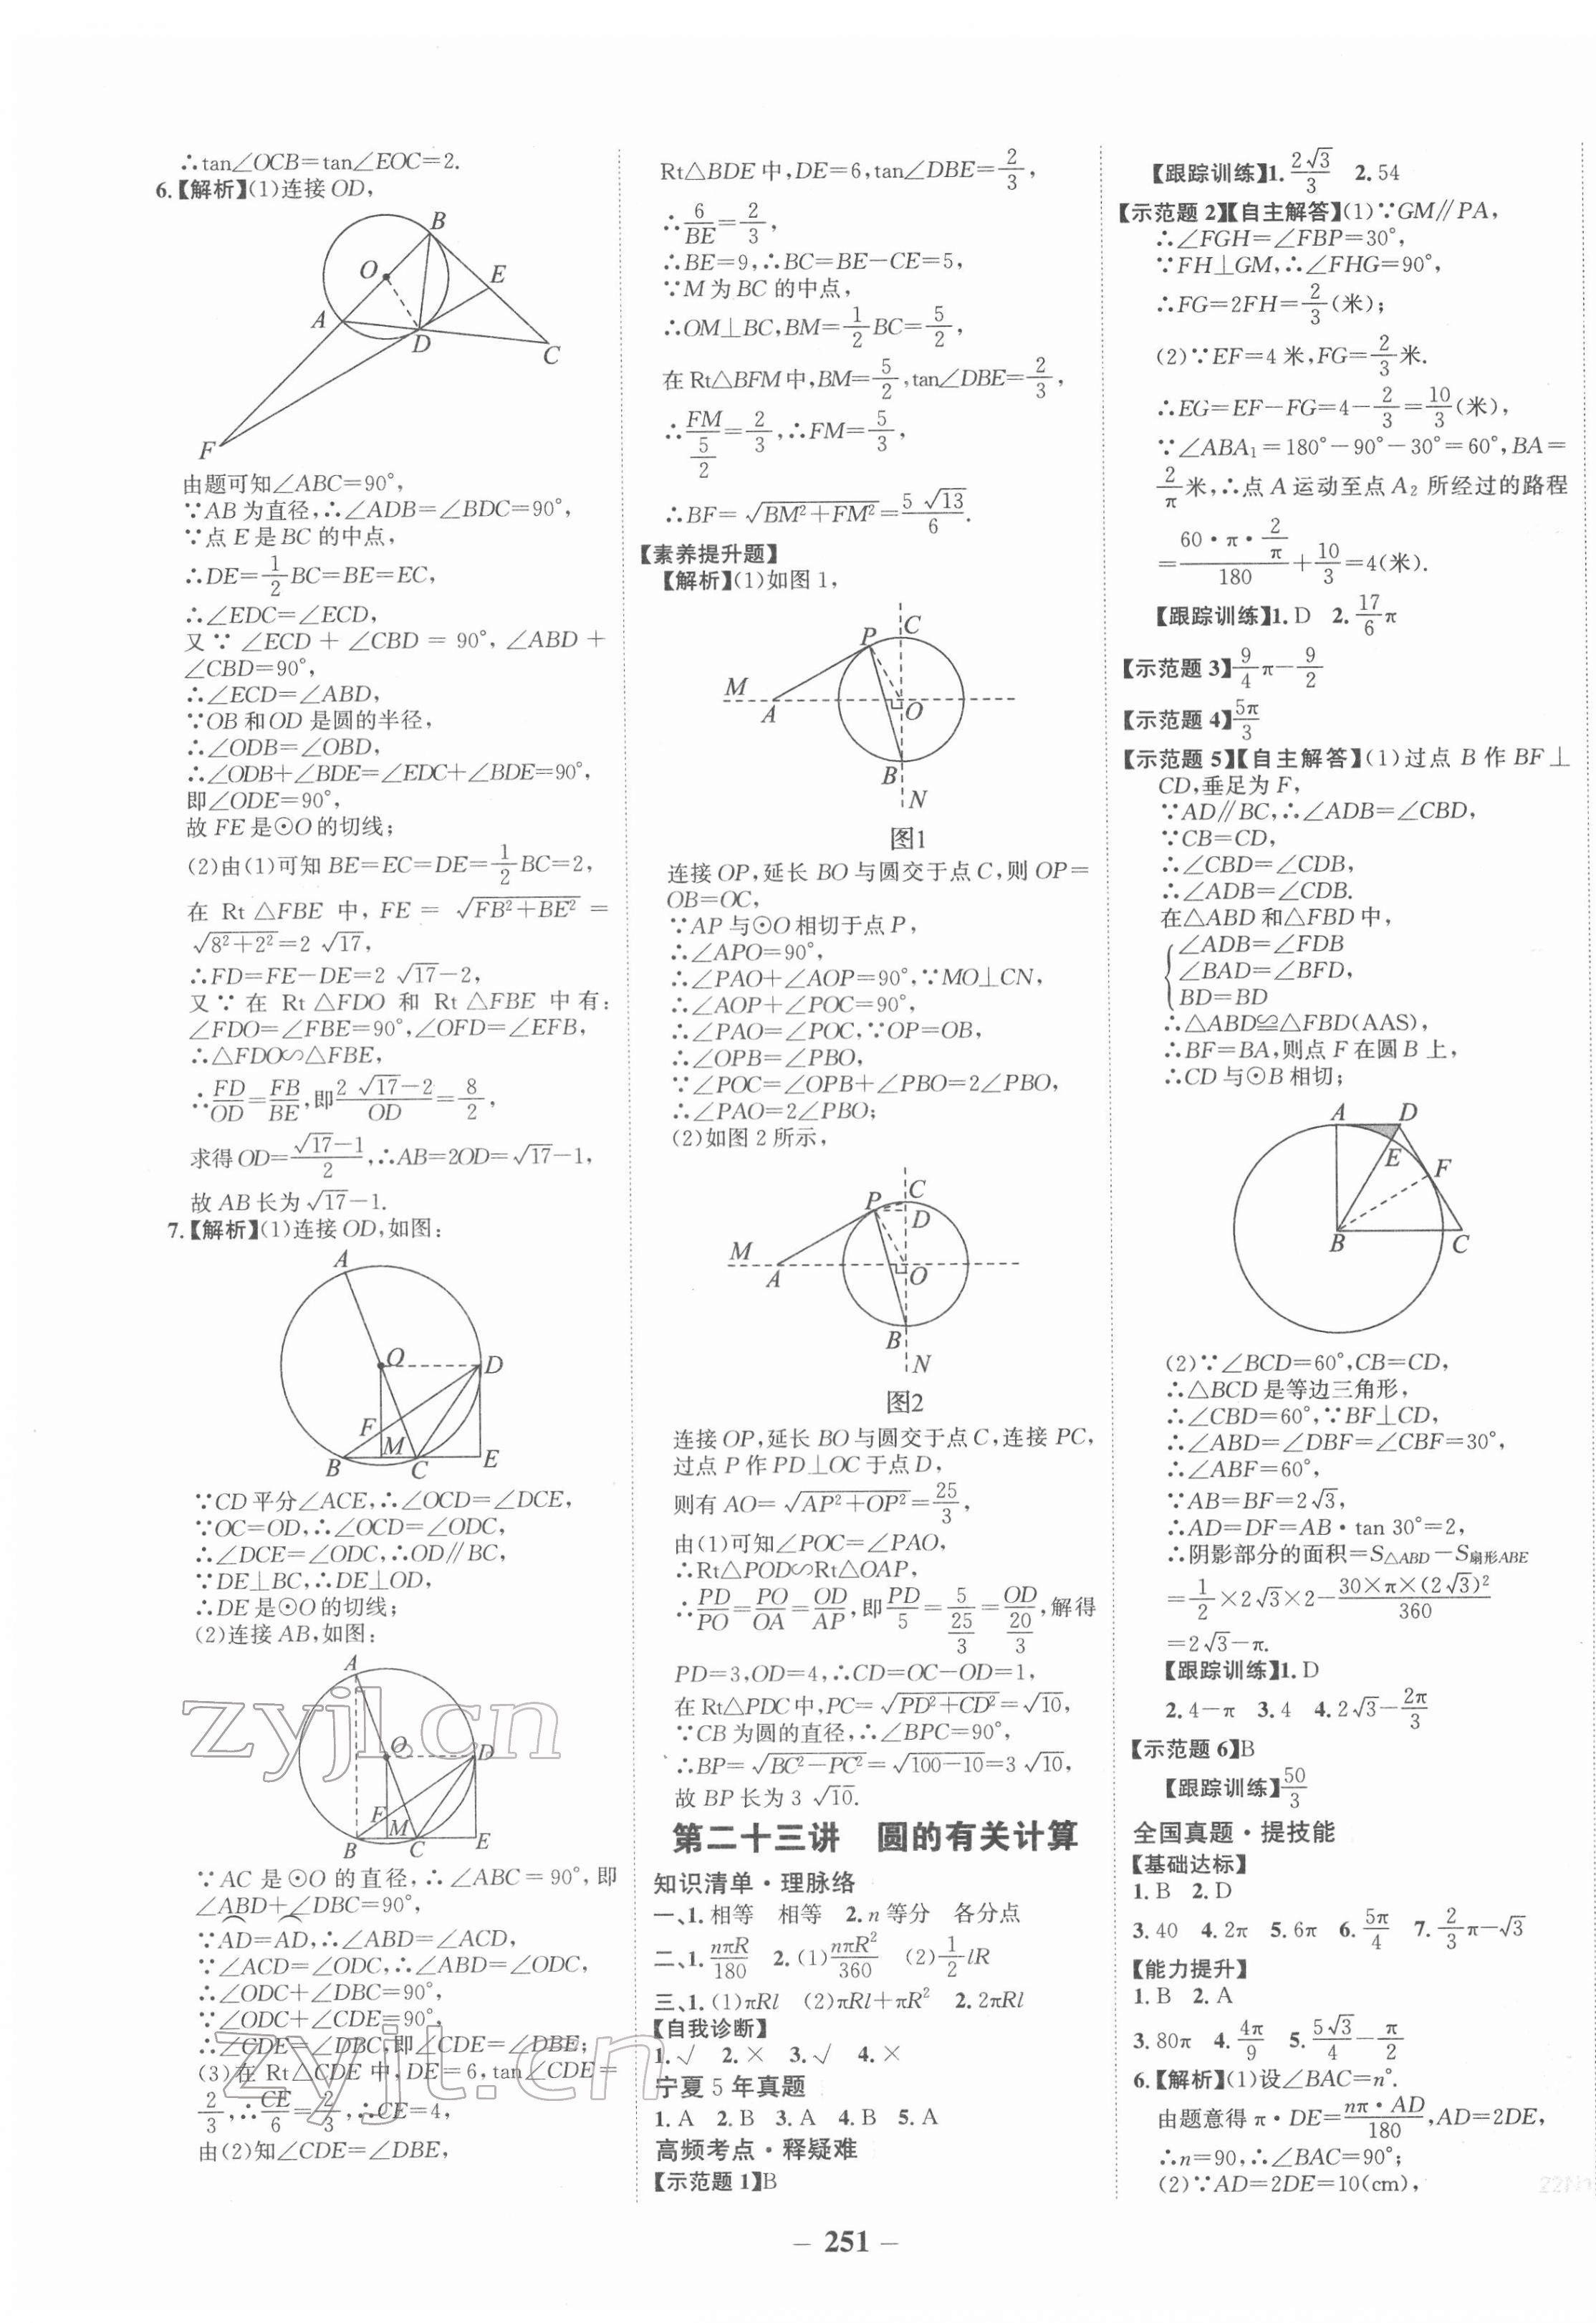 ∴tan∠OCB=tan∠EOC=2.
6.【解析】(1)连接OD,
B
O
E
A
D
C
F
由题可知∠ABC=90°,
∵AB为直径,∴∠ADB=∠BDC=90°,
∵点E是BC的中点,
∴DE=1/2BC=BE=EC,
∴∠EDC=∠ECD,
又∵∠ECD+∠CBD=90°,∠ABD+
∠CBD=90°,
∴∠ECD=∠ABD,
∵OB和OD是圆的半径,
∴∠ODB=∠OBD,
∴∠ODB+∠BDE=∠EDC+∠BDE=90°,
即∠ODE=90°,
故FE是⊙O的切线;
(2)由(1)可知BE=EC=DE=1/2BC=2,
在Rt△FBE中,FE=√(FB²+BE²)=
√(8²+2²)=2√17,
∴FD=FE-DE=2√17-2,
又∵在Rt△FDO和Rt△FBE中有:
∠FDO=∠FBE=90°,∠OFD=∠EFB,
∴△FDO∽△FBE,
∴FD/OD=FB/BE,即(2√17-2)/OD=8/2,
求得OD=(√17-1)/2,∴AB=2OD=√17-1,
故AB长为√17-1.
7.【解析】(1)连接OD,如图:
A
O
D
F
M
B
C
E
∵CD平分∠ACE,∴∠OCD=∠DCE,
∵OC=OD,∴∠OCD=∠ODC,
∴∠DCE=∠ODC,∴OD∥BC,
∵DE⊥BC,∴DE⊥OD,
∴DE是⊙O的切线;
(2)连接AB,如图:
A
O
D
F
M
B
C
E
∵AC是⊙O的直径,∴∠ABC=90°,即
∠ABD+∠DBC=90°,
∵⌒AD=⌒AD,∴∠ABD=∠ACD,
∵∠ACD=∠ODC,∴∠ABD=∠ODC,
∴∠ODC+∠DBC=90°,
∵∠ODC+∠CDE=90°,
∴∠CDE=∠DBC,即∠CDE=∠DBE;
(3)在Rt△CDE中,DE=6,tan∠CDE=
2/3,∴CE/6=2/3,∴CE=4,
由(2)知∠CDE=∠DBE,
Rt△BDE中,DE=6,tan∠DBE=2/3,
∴6/BE=2/3,
∴BE=9,∴BC=BE-CE=5,
∵M为BC的中点,
∴OM⊥BC,BM=1/2BC=5/2,
在Rt△BFM中,BM=5/2,tan∠DBE=2/3,
∴FM/(5/2)=2/3,∴FM=5/3,
∴BF=√(BM²+FM²)=5√13/6.
【素养提升题】
【解析】(1)如图1,
C
P
M
A
O
B
N
图1
连接OP,延长BO与圆交于点C,则OP=
OB=OC,
∵AP与⊙O相切于点P,
∴∠APO=90°,
∴∠PAO+∠AOP=90°,∵MO⊥CN,
∴∠AOP+∠POC=90°,
∴∠PAO=∠POC,∵OP=OB,
∴∠OPB=∠PBO,
∵∠POC=∠OPB+∠PBO=2∠PBO,
∴∠PAO=2∠PBO;
(2)如图2所示,
C
P
D
M
A
O
B
N
图2
连接OP,延长BO与圆交于点C,连接PC,
过点P作PD⊥OC于点D,
则有AO=√(AP²+OP²)=25/3,
由(1)可知∠POC=∠PAO,
∴Rt△POD∽Rt△OAP,
∴PD/PO=PO/OA=OD/AP,即PD/5=5/(25/3)=OD/(20/3),解得
PD=3,OD=4,∴CD=OC-OD=1,
在Rt△PDC中,PC=√(PD²+CD²)=√10,
∵CB为圆的直径,∴∠BPC=90°,
∴BP=√(BC²-PC²)=√(100-10)=3√10,
故BP长为3√10.
第二十三讲 圆的有关计算
知识清单·理脉络
一、1.相等 相等 2.n等分 各分点
二、1.nπR/180 2.(1)nπR²/360 (2)1/2lR
三、1.(1)πRl (2)πRl+πR² 2.2πRl
【自我诊断】
1.√ 2.× 3.√ 4.×
宁夏5年真题
1.A 2.B 3.A 4.B 5.A
高频考点·释疑难
【示范题1】B
【跟踪训练】1.2√3/3 2.54
【示范题2】【自主解答】(1)∵GM∥PA,
∴∠FGH=∠FBP=30°,
∵FH⊥GM,∴∠FHG=90°,
∴FG=2FH=2/3(米);
(2)∵EF=4米,FG=2/3米.
∴EG=EF-FG=4-2/3=10/3(米),
∵∠ABA₁=180°-90°-30°=60°,BA=
2/π米,∴点A运动至点A₂所经过的路程
=(60·π·2/π)/180+10/3=4(米).
【跟踪训练】1.D 2.17/6π
【示范题3】9/4π-9/2
【示范题4】5π/3
【示范题5】【自主解答】(1)过点B作BF⊥
CD,垂足为F,
∵AD∥BC,∴∠ADB=∠CBD,
∵CB=CD,
∴∠CBD=∠CDB,
∴∠ADB=∠CDB.
在△ABD和△FBD中,
{∠ADB=∠FDB
∠BAD=∠BFD,
BD=BD
∴△ABD≌△FBD(AAS),
∴BF=BA,则点F在圆B上,
∴CD与⊙B相切;
A
D
E
F
B
C
(2)∵∠BCD=60°,CB=CD,
∴△BCD是等边三角形,
∴∠CBD=60°,∵BF⊥CD,
∴∠ABD=∠DBF=∠CBF=30°,
∴∠ABF=60°,
∵AB=BF=2√3,
∴AD=DF=AB·tan 30°=2,
∴阴影部分的面积=S△ABD-S扇形ABE
=1/2×2√3×2-30×π×(2√3)²/360
=2√3-π.
【跟踪训练】1.D
2.4-π 3.4 4.2√3-2π/3
【示范题6】B
【跟踪训练】50/3
全国真题·提技能
【基础达标】
1.B 2.D
3.40 4.2π 5.6π 6.5π/4 7.2/3π-√3
【能力提升】
1.B 2.A
3.80π 4.4π/9 5.5√3/4-π/2
6.【解析】(1)设∠BAC=n°.
由题意得π·DE=nπ·AD/180,AD=2DE,
∴n=90,∴∠BAC=90°;
(2)∵AD=2DE=10(cm),
— 251 —
zyjl.cn
zyjl.cn